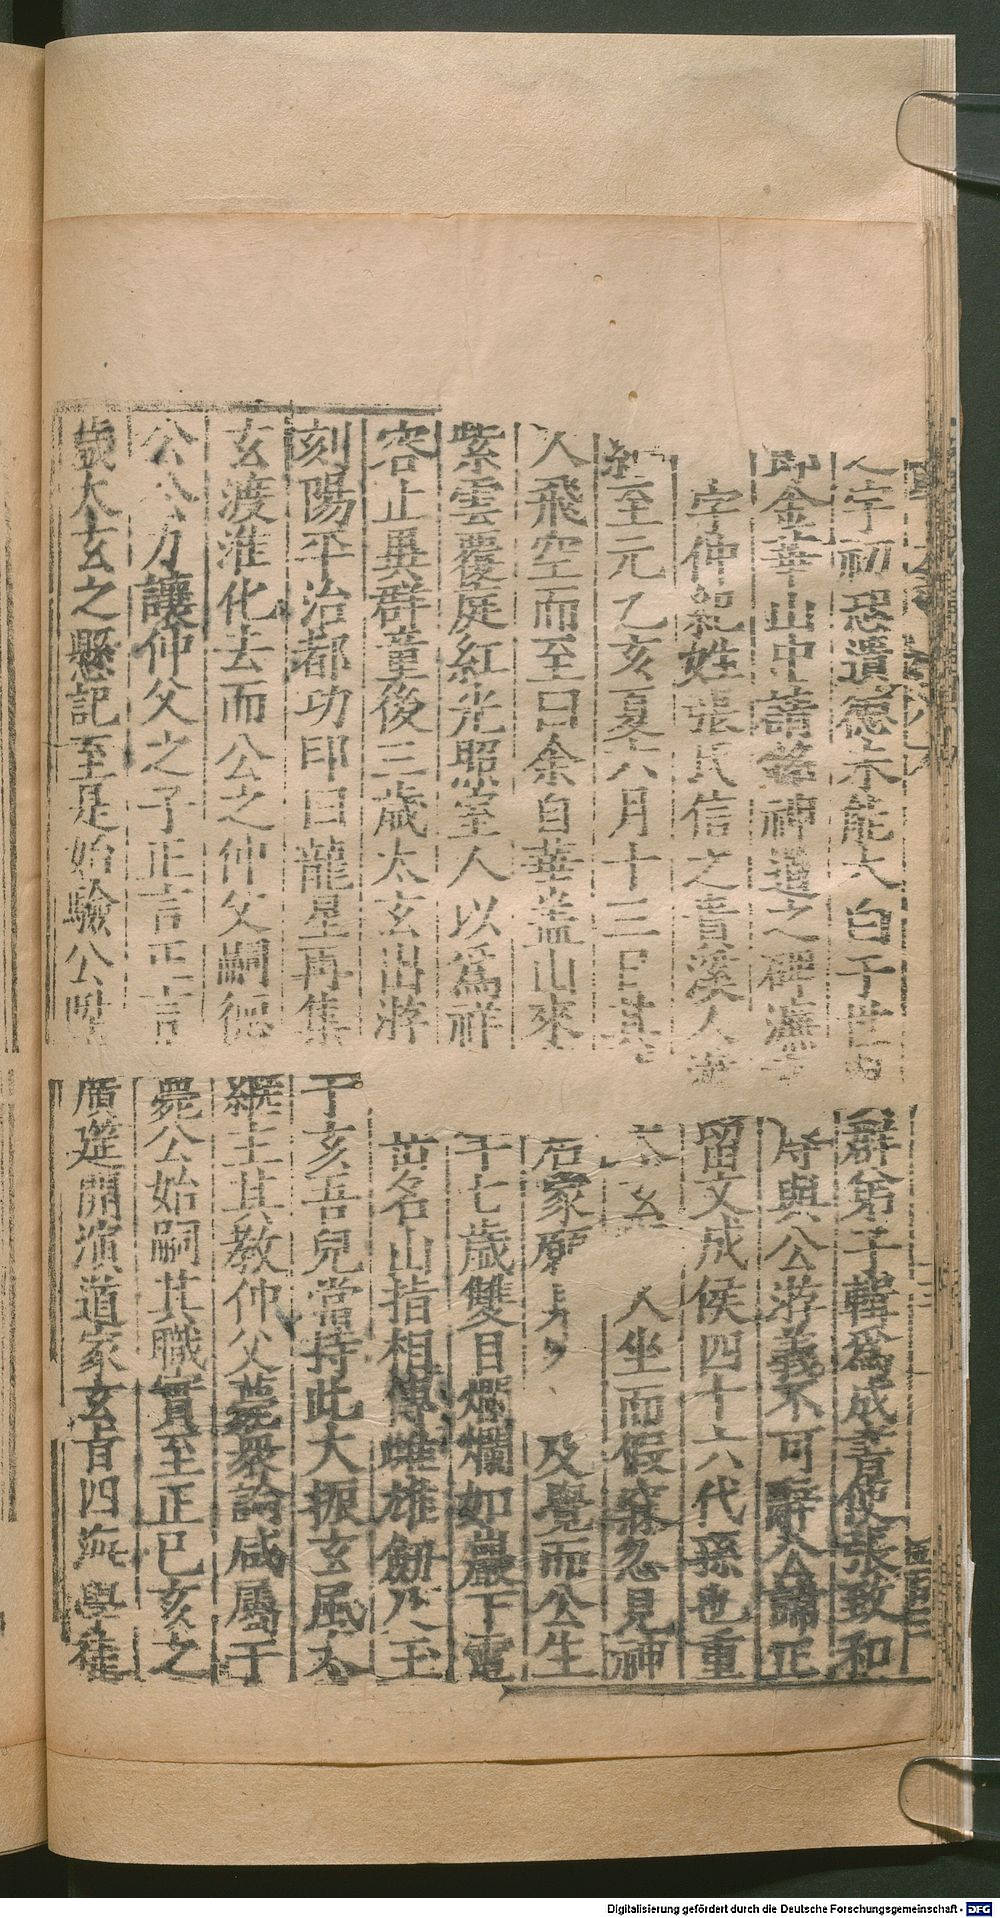 字初恐遺德未能大白于
群弟子輯爲成書使張致和
金華山中請銘神道之碑濂
時與公游義不可辭公諱正
字仲紀姓張氏信之貴溪人
留文成侯四十六代孫也重
紀至元乙亥夏六月十三日其
人坐而假寐忽見神
人飛空而至曰余自華蓋山來
及覺而公生
紫雲覆庭紅光照室人以爲祥
年七歲雙目爛爛如巖下電
容止異群童後三歲太玄出游
名山指相傳雌雄劒及玉
刻陽平治都功印曰龍星再集
于亥吾兒當持此大振玄風太
玄渡淮化去而公之仲父嗣德
繼主其教仲父薨衆論咸屬于
公公乃讓仲父之子正言正言
薨公始嗣其職實至正己亥之
歲太玄之懸記至是始驗公
廣筵開演道家玄旨四海學徒
Digitalisierung gefördert durch die Deutsche Forschungsgemeinschaft - DFG